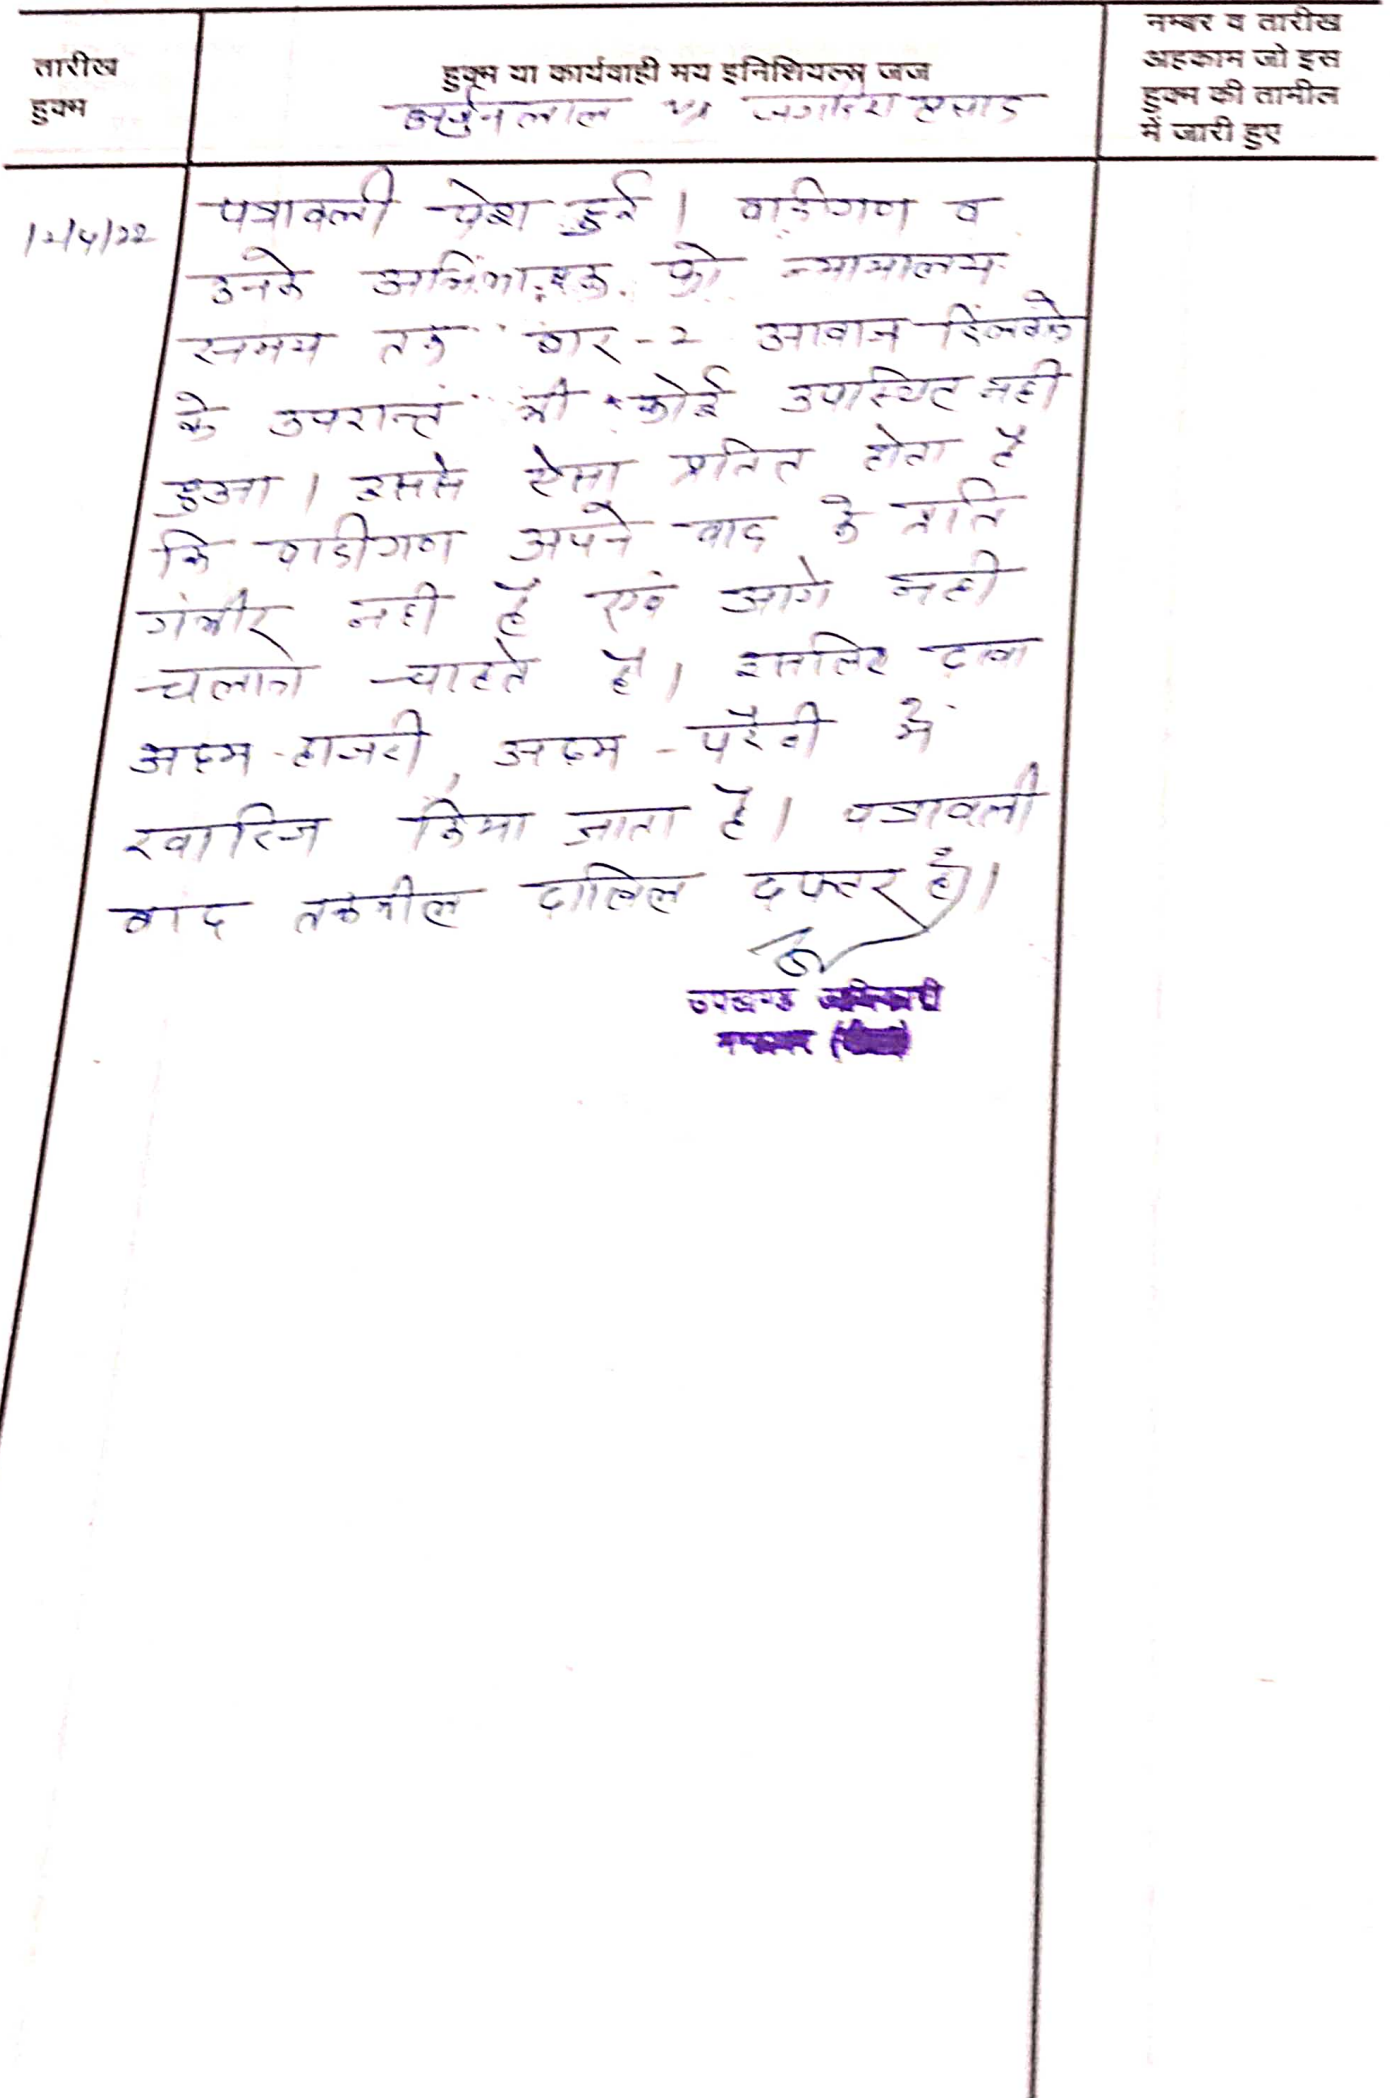 तारीख
हुक्म
हुक्म या कार्यवाही मय इनिशियल्स जज
अर्जुनलाल v/s जगदिश प्रसाद
नम्बर व तारीख
अहकाम जो इस
हुक्म की तामील
में जारी हुए
12/4/22
पत्रावली पेश हुई। वादीगण व
उनके अभिभाषक को न्यायालय
समय तक बार-2 आवाज दिलवाने
के उपरान्त भी कोई उपस्थित नही
हुआ। इससे ऐसा प्रतित होता है
कि वादीगण अपने वाद के प्रति
गंभीर नही है एवं आगे नही
चलाना चाहते है। इसलिए दावा
अदम-हाजरी, अदम-पैरवी में
खारिज किया जाता है। पत्रावली
बाद तकमील दाखिल दफ्तर हो।
उपखण्ड अधिकारी